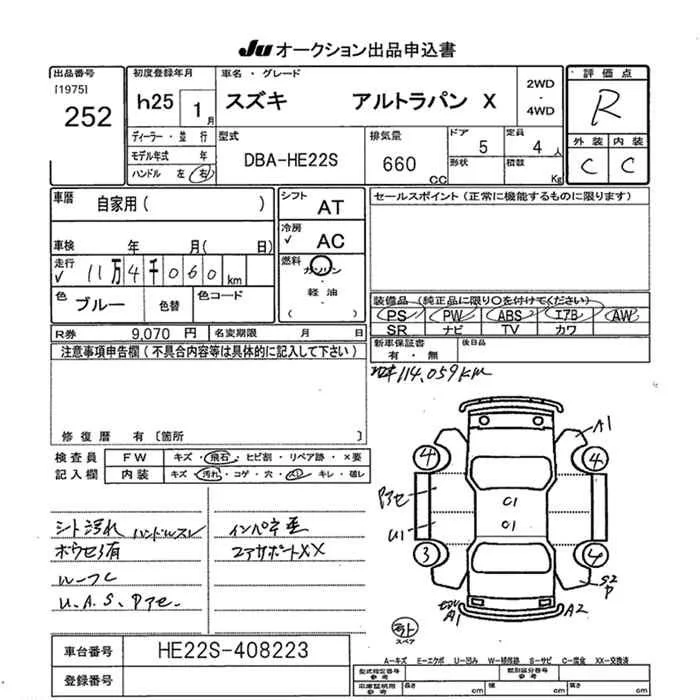 Ju オークション出品申込書
出品番号 初度登録年月 車名・グレード 評価点
[1975] 252 h25 1月 スズキ アルトラパン X 2WD・4WD R
ディーラー・並行 型式 排気量 ドア 定員 外装 内装
モデル年式 年 DBA-HE22S 660CC 5 4人 C C
ハンドル 左 右 形状 積数 Kg
車歴 自家用( ) シフト AT セールスポイント(正常に機能するものに限ります)
車検 年 月( 日) 冷房 √ AC
走行 √ 11万4千060km 燃料 ガソリン・軽油・( )
色 ブルー 色替 色コード 装備品(純正品に限り○を付けてください)
PS PW ABS エアB AW
SR ナビ TV カワ
R券 9,070円 名変期限 月 日 新車保証書 有・無 後日品
注意事項申告欄(不具合内容等は具体的に記入して下さい)
114,059km
修復歴 有〔箇所
検査員 FW キズ・飛石・ヒビ割・リペア跡・×要
記入欄 内装 キズ・汚れ・コゲ・穴・スレ・キレ・破レ
シート汚れ ハンドルスレ インパネ歪
コアサポートXX
ルーフC
U.A.S.Pアセ.
A1
4 4
Pアセ C1
U1 C1
3 4
S2
P
A1 A2
スペア
車台番号 HE22S-408223
登録番号
A―キズ E―エクボ U―凹み W―補修跡 S―サビ C―腐食 XX―交換済
型式指定番号 類別区分番号
長さ cm 幅 cm 高さ cm